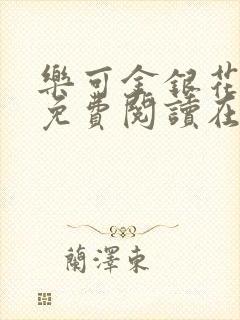 樂可金銀花
免費閱讀在
蘭澤東